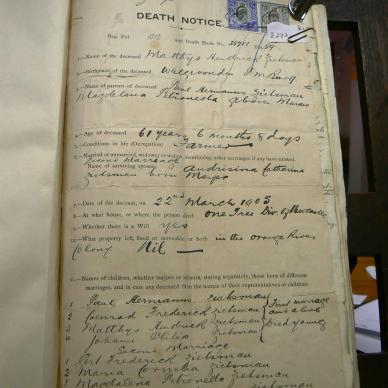 DEATH NOTICE.
Reg. Fol. and Death Book No.
1.—Name of the deceased Matthys Hendrik Zietsman
2.—Birthplace of the deceased
3.—Names of parents of deceased Paul Hermanus Zietsman
Magdalena Petronella
4.—Age of deceased 61 years 6 months 8 days
5.—Conditions in life (Occupation) Farmer
6.—Married or unmarried, widower or widow, mentioning other marriages if any have ensued.
Second marriage
Name of surviving spouse Andresina Catharina
Zietsman born
7.—Date of the decease, on 22nd March 1903
8.—At what house, or where the person died One Tree Div. of Newcastle
9.—Whether there is a Will Yes
10.—What property left, fixed or moveable, or both in the Orange River
Colony Nil —
11.—Names of children, whether majors or minors, stating separately, those born of different
marriages, and in case any deceased then the names of their representatives or children
1 Paul Hermanus Zietsman First marriage
2 Conrad Frederick Zietsman and alive
3 Matthys Hendrik Zietsman Died young
4 Johannes Philip Zietsman
Second Marriage
1 Frederick Zietsman
2 Maria Cornelia Zietsman
3 Magdalena Petronella Zietsman